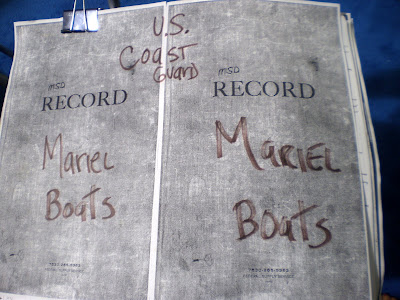 U.S.
Coast
Guard
MSD
RECORD
Mariel
Boats
MSD
RECORD
MARIEL
Boats